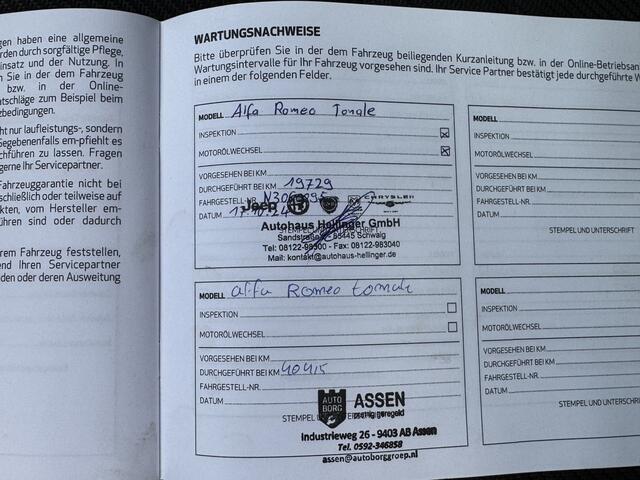 gen haben eine allgemeine
rden durch sorgfältige Pflege,
insatz und der Nutzung. In
n Sie in der dem Fahrzeug
bzw. in der Online-
tschläge zum Beispiel beim
zbedingungen.
ht nur laufleistungs-, sondern
Gegebenenfalls em-pfiehlt es
chführen zu lassen. Fragen
gerne Ihr Servicepartner.
Fahrzeuggarantie nicht bei
schließlich oder teilweise auf
kten, vom Hersteller em-
ühren sind oder dadurch
rem Fahrzeug feststellen,
end Ihren Servicepartner
den oder deren Ausweitung
WARTUNGSNACHWEISE
Bitte überprüfen Sie in der dem Fahrzeug beiliegenden Kurzanleitung bzw. in der Online-Betriebsan
Wartungsintervalle für Ihr Fahrzeug vorgesehen sind. Ihr Service Partner bestätigt jede durchgeführte W
in einem der folgenden Felder.
MODELL Alfa Romeo Tonale
INSPEKTION
MOTORÖLWECHSEL
VORGESEHEN BEI KM
DURCHGEFÜHRT BEI KM 19729
FAHRGESTELL-NR.
Jeep CHRYSLER
DATUM 17.10.24
Autohaus Hellinger GmbH
STEMPEL UND UNTERSCHRIFT
Schwaig
Tel: 08122-98300 - Fax: 08122-983040
Mail: kontakt@autohaus-hellinger.de
MODELL alfa Romeo tonale
INSPEKTION
MOTORÖLWECHSEL
VORGESEHEN BEI KM
DURCHGEFÜHRT BEI KM 40415
FAHRGESTELL-NR.
DATUM
AUTO BORG ASSEN
prettig geregeld
STEMPEL
Industrieweg 26 - 9403 AB Assen
Tel. 0592-346858
assen@autoborggroep.nl
MODELL
INSPEKTION
MOTORÖLWECHSEL
VORGESEHEN BEI KM
DURCHGEFÜHRT BEI KM
FAHRGESTELL-NR.
DATUM
STEMPEL UND UNTERSCHRIFT
MODELL
INSPEKTION
MOTORÖLWECHSEL
VORGESEHEN BEI KM
DURCHGEFÜHRT BEI KM
FAHRGESTELL-NR.
DATUM
STEMPEL UND UNTERSCHRIFT